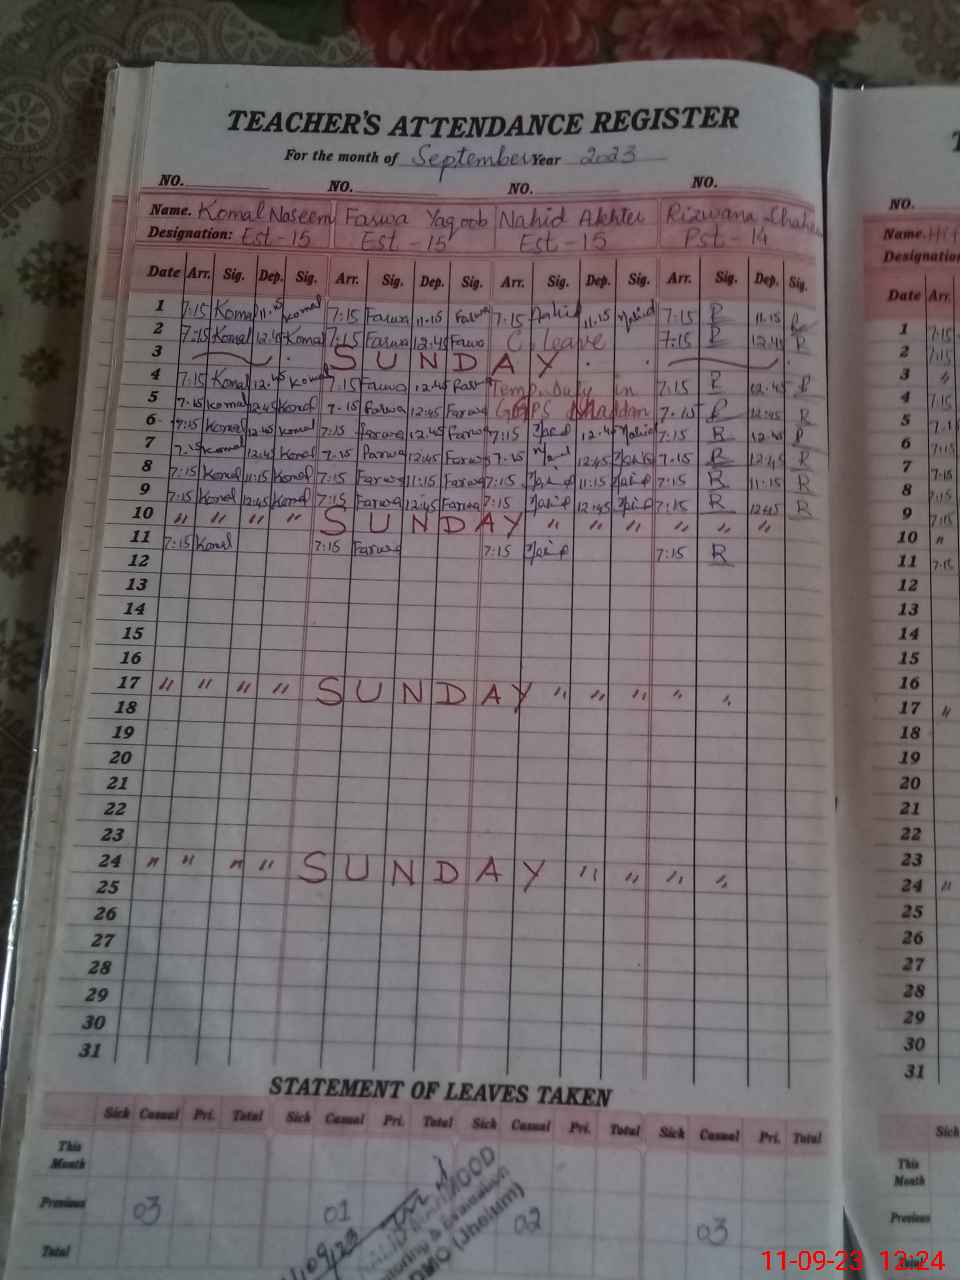 TEACHER'S ATTENDANCE REGISTER
For the month of September Year 2023
NO. NO. NO. NO.
Name. Komal Naseem Farwa Yaqoob Nahid Akhter Rizwana
Designation: Est-15 Est-15 Est-15 Pst-14
Date Arr. Sig. Dep. Sig. Arr. Sig. Dep. Sig. Arr. Sig. Dep. Sig. Arr. Sig. Dep. Sig.
1 7:15 Komal 11.15 Komal 7:15 Farwa 11.15 Farwa 7.15 Nahid 11.15 Nahid 7:15 R 11.15 R
2 7:15 Komal 12.45 Komal 7:15 Farwa 12.45 Farwa C. leave 7:15 R 12.45 R
3 SUNDAY
4 7:15 Komal 12.45 Komal 7:15 Farwa 12.45 Temp. Duty in 7:15 R 12.45 R
5 7.15 Komal 12.45 Komal 7.15 Farwa 12:45 Farwa 7.15 R 12:45 R
6 7:15 Komal 12.45 Komal 7:15 Farwa 12.45 Farwa 7:15 12.45 Nahid 7:15 R 12.45 R
7 7.15 Komal 12:45 Komal 7.15 Farwa 12:45 Farwa 7.15 12:45 7.15 R 12:45 R
8 7:15 Komal 11:15 Komal 7:15 Farwa 11:15 Farwa 7:15 11:15 7:15 R 11:15 R
9 7:15 Komal 12:45 Komal 7:15 Farwa 12:45 Farwa 7:15 12:45 7:15 R 12:45 R
10 " " " " SUNDAY " " " " " "
11 7:15 Komal 7:15 Farwa 7:15 7:15 R
12
13
14
15
16
17 " " " " SUNDAY " " " " "
18
19
20
21
22
23
24 " " " " SUNDAY " " " "
25
26
27
28
29
30
31
STATEMENT OF LEAVES TAKEN
Sick Casual Pri. Total Sick Casual Pri. Total Sick Casual Pri. Total Sick Casual Pri. Total
This Month
Previous 03 01 02 03
Total
(Jhelum)
NO.
Name.
Designation
Date Arr.
1 7:15
2 7:15
3 "
4 7:15
5
6 7:15
7 7:15
8 7:15
9 7:15
10 "
11 7:15
12
13
14
15
16
17 "
18
19
20
21
22
23
24 "
25
26
27
28
29
30
31
Sick
This Month
Previous
Total
11-09-23 12:24